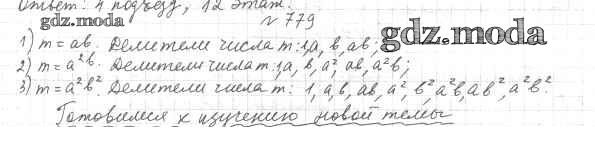 Ответ: 4 подъезд, 12 этаж.
gdz.moda
№ 779
gdz.moda
1) m = ab. Делители числа m: 1, a, b, ab;
2) m = a²b. Делители числа m: 1, a, b, a², ab, a²b;
3) m = a²b². Делители числа m: 1, a, b, ab, a², b², a²b, ab², a²b².
Готовимся к изучению новой темы